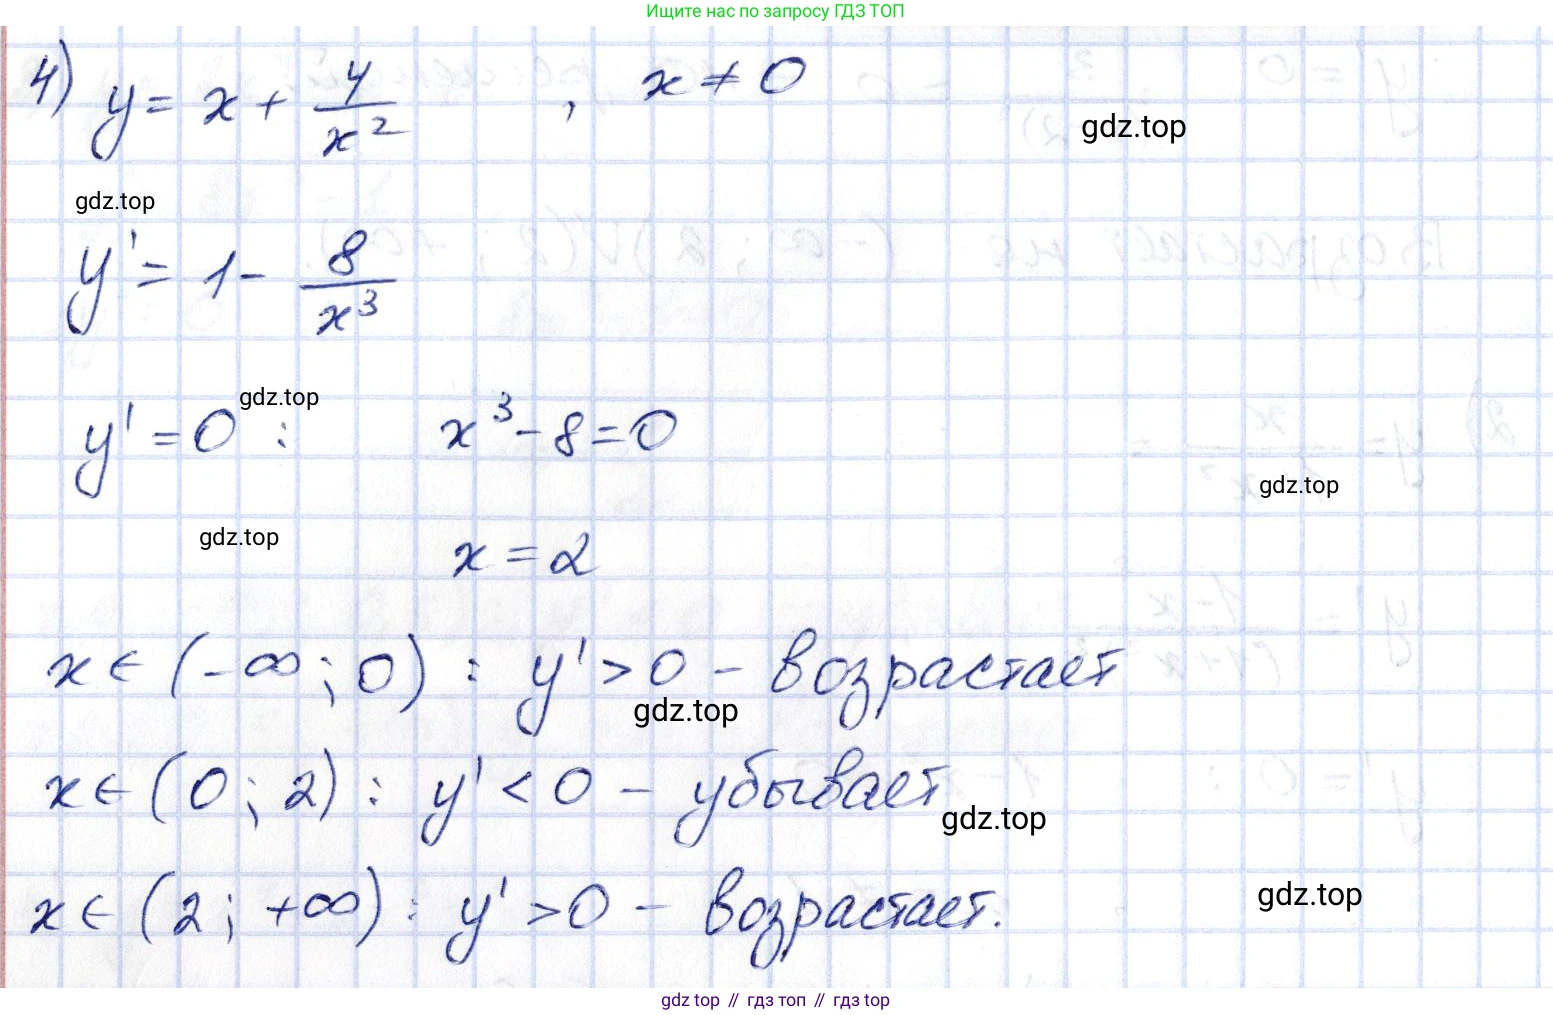 Ищите нас по запросу ГДЗ ТОП
4) y = x + 4/x² , x ≠ 0
gdz.top
gdz.top
y' = 1 - 8/x³
gdz.top
y' = 0 : x³ - 8 = 0
gdz.top
gdz.top
x = 2
x ∈ (-∞; 0) : y' > 0 - возрастает
gdz.top
x ∈ (0; 2) : y' < 0 - убывает
gdz.top
x ∈ (2; +∞) : y' > 0 - возрастает.
gdz.top
gdz top // гдз топ // гдз top